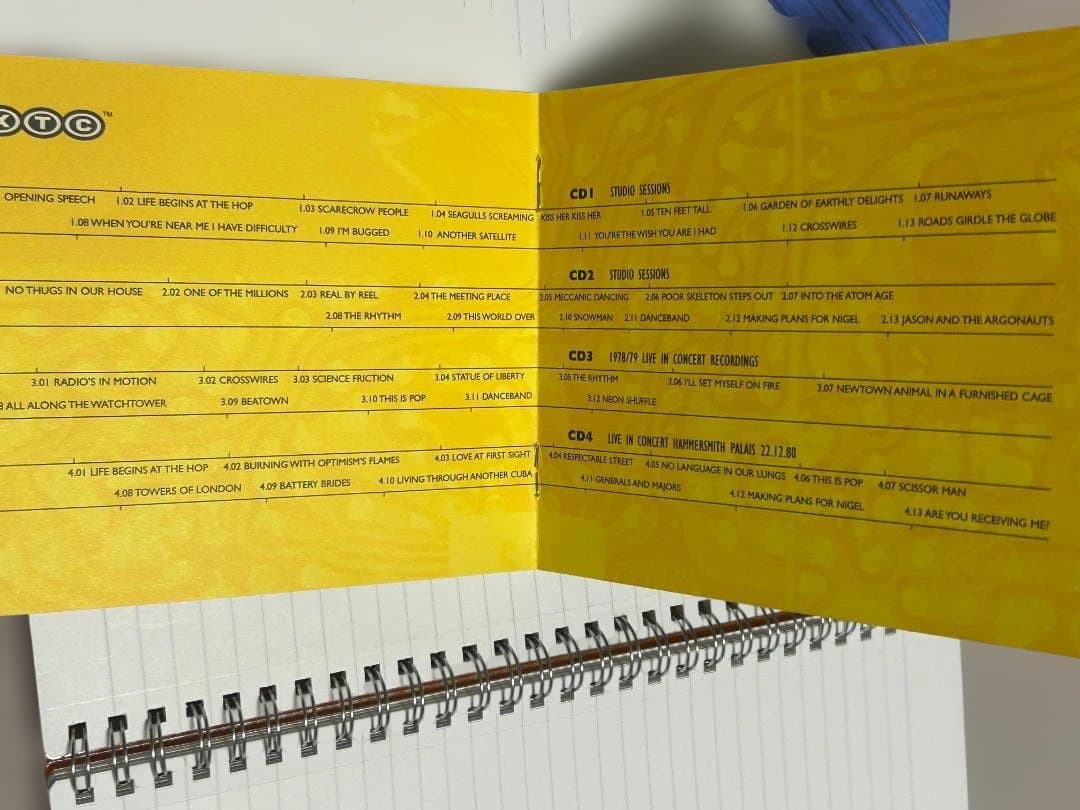 XTC™
CD1 STUDIO SESSIONS
OPENING SPEECH 1.02 LIFE BEGINS AT THE HOP 1.03 SCARECROW PEOPLE 1.04 SEAGULLS SCREAMING KISS HER KISS HER 1.05 TEN FEET TALL 1.06 GARDEN OF EARTHLY DELIGHTS 1.07 RUNAWAYS
1.08 WHEN YOU'RE NEAR ME I HAVE DIFFICULTY 1.09 I'M BUGGED 1.10 ANOTHER SATELLITE 1.11 YOU'RE THE WISH YOU ARE I HAD 1.12 CROSSWIRES 1.13 ROADS GIRDLE THE GLOBE
CD2 STUDIO SESSIONS
NO THUGS IN OUR HOUSE 2.02 ONE OF THE MILLIONS 2.03 REAL BY REEL 2.04 THE MEETING PLACE 2.05 MECCANIC DANCING 2.06 POOR SKELETON STEPS OUT 2.07 INTO THE ATOM AGE
2.08 THE RHYTHM 2.09 THIS WORLD OVER 2.10 SNOWMAN 2.11 DANCEBAND 2.12 MAKING PLANS FOR NIGEL 2.13 JASON AND THE ARGONAUTS
CD3 1978/79 LIVE IN CONCERT RECORDINGS
3.01 RADIO'S IN MOTION 3.02 CROSSWIRES 3.03 SCIENCE FRICTION 3.04 STATUE OF LIBERTY 3.05 THE RHYTHM 3.06 I'LL SET MYSELF ON FIRE 3.07 NEWTOWN ANIMAL IN A FURNISHED CAGE
8 ALL ALONG THE WATCHTOWER 3.09 BEATOWN 3.10 THIS IS POP 3.11 DANCEBAND 3.12 NEON SHUFFLE
CD4 LIVE IN CONCERT HAMMERSMITH PALAIS 22.12.80
4.01 LIFE BEGINS AT THE HOP 4.02 BURNING WITH OPTIMISM'S FLAMES 4.03 LOVE AT FIRST SIGHT 4.04 RESPECTABLE STREET 4.05 NO LANGUAGE IN OUR LUNGS 4.06 THIS IS POP 4.07 SCISSOR MAN
4.08 TOWERS OF LONDON 4.09 BATTERY BRIDES 4.10 LIVING THROUGH ANOTHER CUBA 4.11 GENERALS AND MAJORS 4.12 MAKING PLANS FOR NIGEL 4.13 ARE YOU RECEIVING ME?